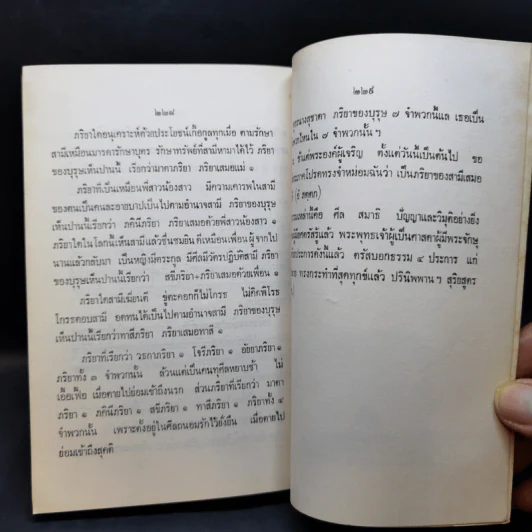 ๒๒๘
ภริยาใดอนุเคราะห์ด้วยประโยชน์เกื้อกูลทุกเมื่อ ตามรักษา
สามีเหมือนมารดารักษาบุตร รักษาทรัพย์ที่สามีหามาได้ไว้ ภริยา
ของบุรุษเห็นปานนี้ เรียกว่ามาตาภริยา ภริยาเสมอแม่ ๑
ภริยาที่เป็นเหมือนพี่สาวน้องสาว มีความเคารพในสามี
ของตนเป็นคนละอายบาปเป็นไปตามอำนาจสามี ภริยาของบุรุษ
เห็นปานนี้เรียกว่า ภคินีภริยา ภริยาเสมอด้วยพี่สาวน้องสาว ๑
ภริยาใดในโลกนี้เห็นสามีแล้วชื่นชมยินดีเหมือนเพื่อนผู้จากไป
นานแล้วกลับมา เป็นหญิงมีตระกูล มีศีลมีวัตรปฏิบัติสามี ภริยา
ของบุรุษเห็นปานนี้เรียกว่า สขีภริยา ภริยาเสมอด้วยเพื่อน ๑
ภริยาใดสามีเฆี่ยนตี ขู่ตะคอกก็ไม่โกรธ ไม่คิดพิโรธ
โกรธตอบสามี อดทนได้เป็นไปตามอำนาจสามี ภริยาของบุรุษ
เห็นปานนี้เรียกว่าทาสีภริยา ภริยาเสมอทาสี ๑
ภริยาที่เรียกว่า วธกาภริยา ๑ โจรีภริยา ๑ อัยยาภริยา ๑
ภริยาทั้ง ๓ จำพวกนั้น ล้วนแต่เป็นคนทุศีลหยาบช้า ไม่
เอื้อเฟื้อ เมื่อตายไปย่อมเข้าถึงนรก ส่วนภริยาที่เรียกว่า มาตา
ภริยา ๑ ภคินีภริยา ๑ สขีภริยา ๑ ทาสีภริยา ๑ ภริยาทั้ง ๔
จำพวกนั้น เพราะตั้งอยู่ในศีลถนอมรักไว้ยั่งยืน เมื่อตายไป
ย่อมเข้าถึงสุคติ
๒๒๙
นางสุชาดา ภริยาของบุรุษ ๗ จำพวกนี้แล เธอเป็น
ไหนใน ๗ จำพวกนั้น ฯ
ข้าแต่พระองค์ผู้เจริญ ตั้งแต่วันนี้เป็นต้นไป ขอ
โปรดทรงจำหม่อมฉันว่า เป็นภริยาของสามีเสมอ
เหล่านี้คือ ศีล สมาธิ ปัญญาและวิมุตติอย่างยิ่ง
ตรัสรู้แล้ว พระพุทธเจ้าผู้เป็นศาสดาผู้มีพระจักษุ
ประการดังนี้แล้ว ตรัสบอกธรรม ๔ ประการ แก่
ทรงกระทำที่สุดทุกข์แล้ว ปรินิพพาน ฯ